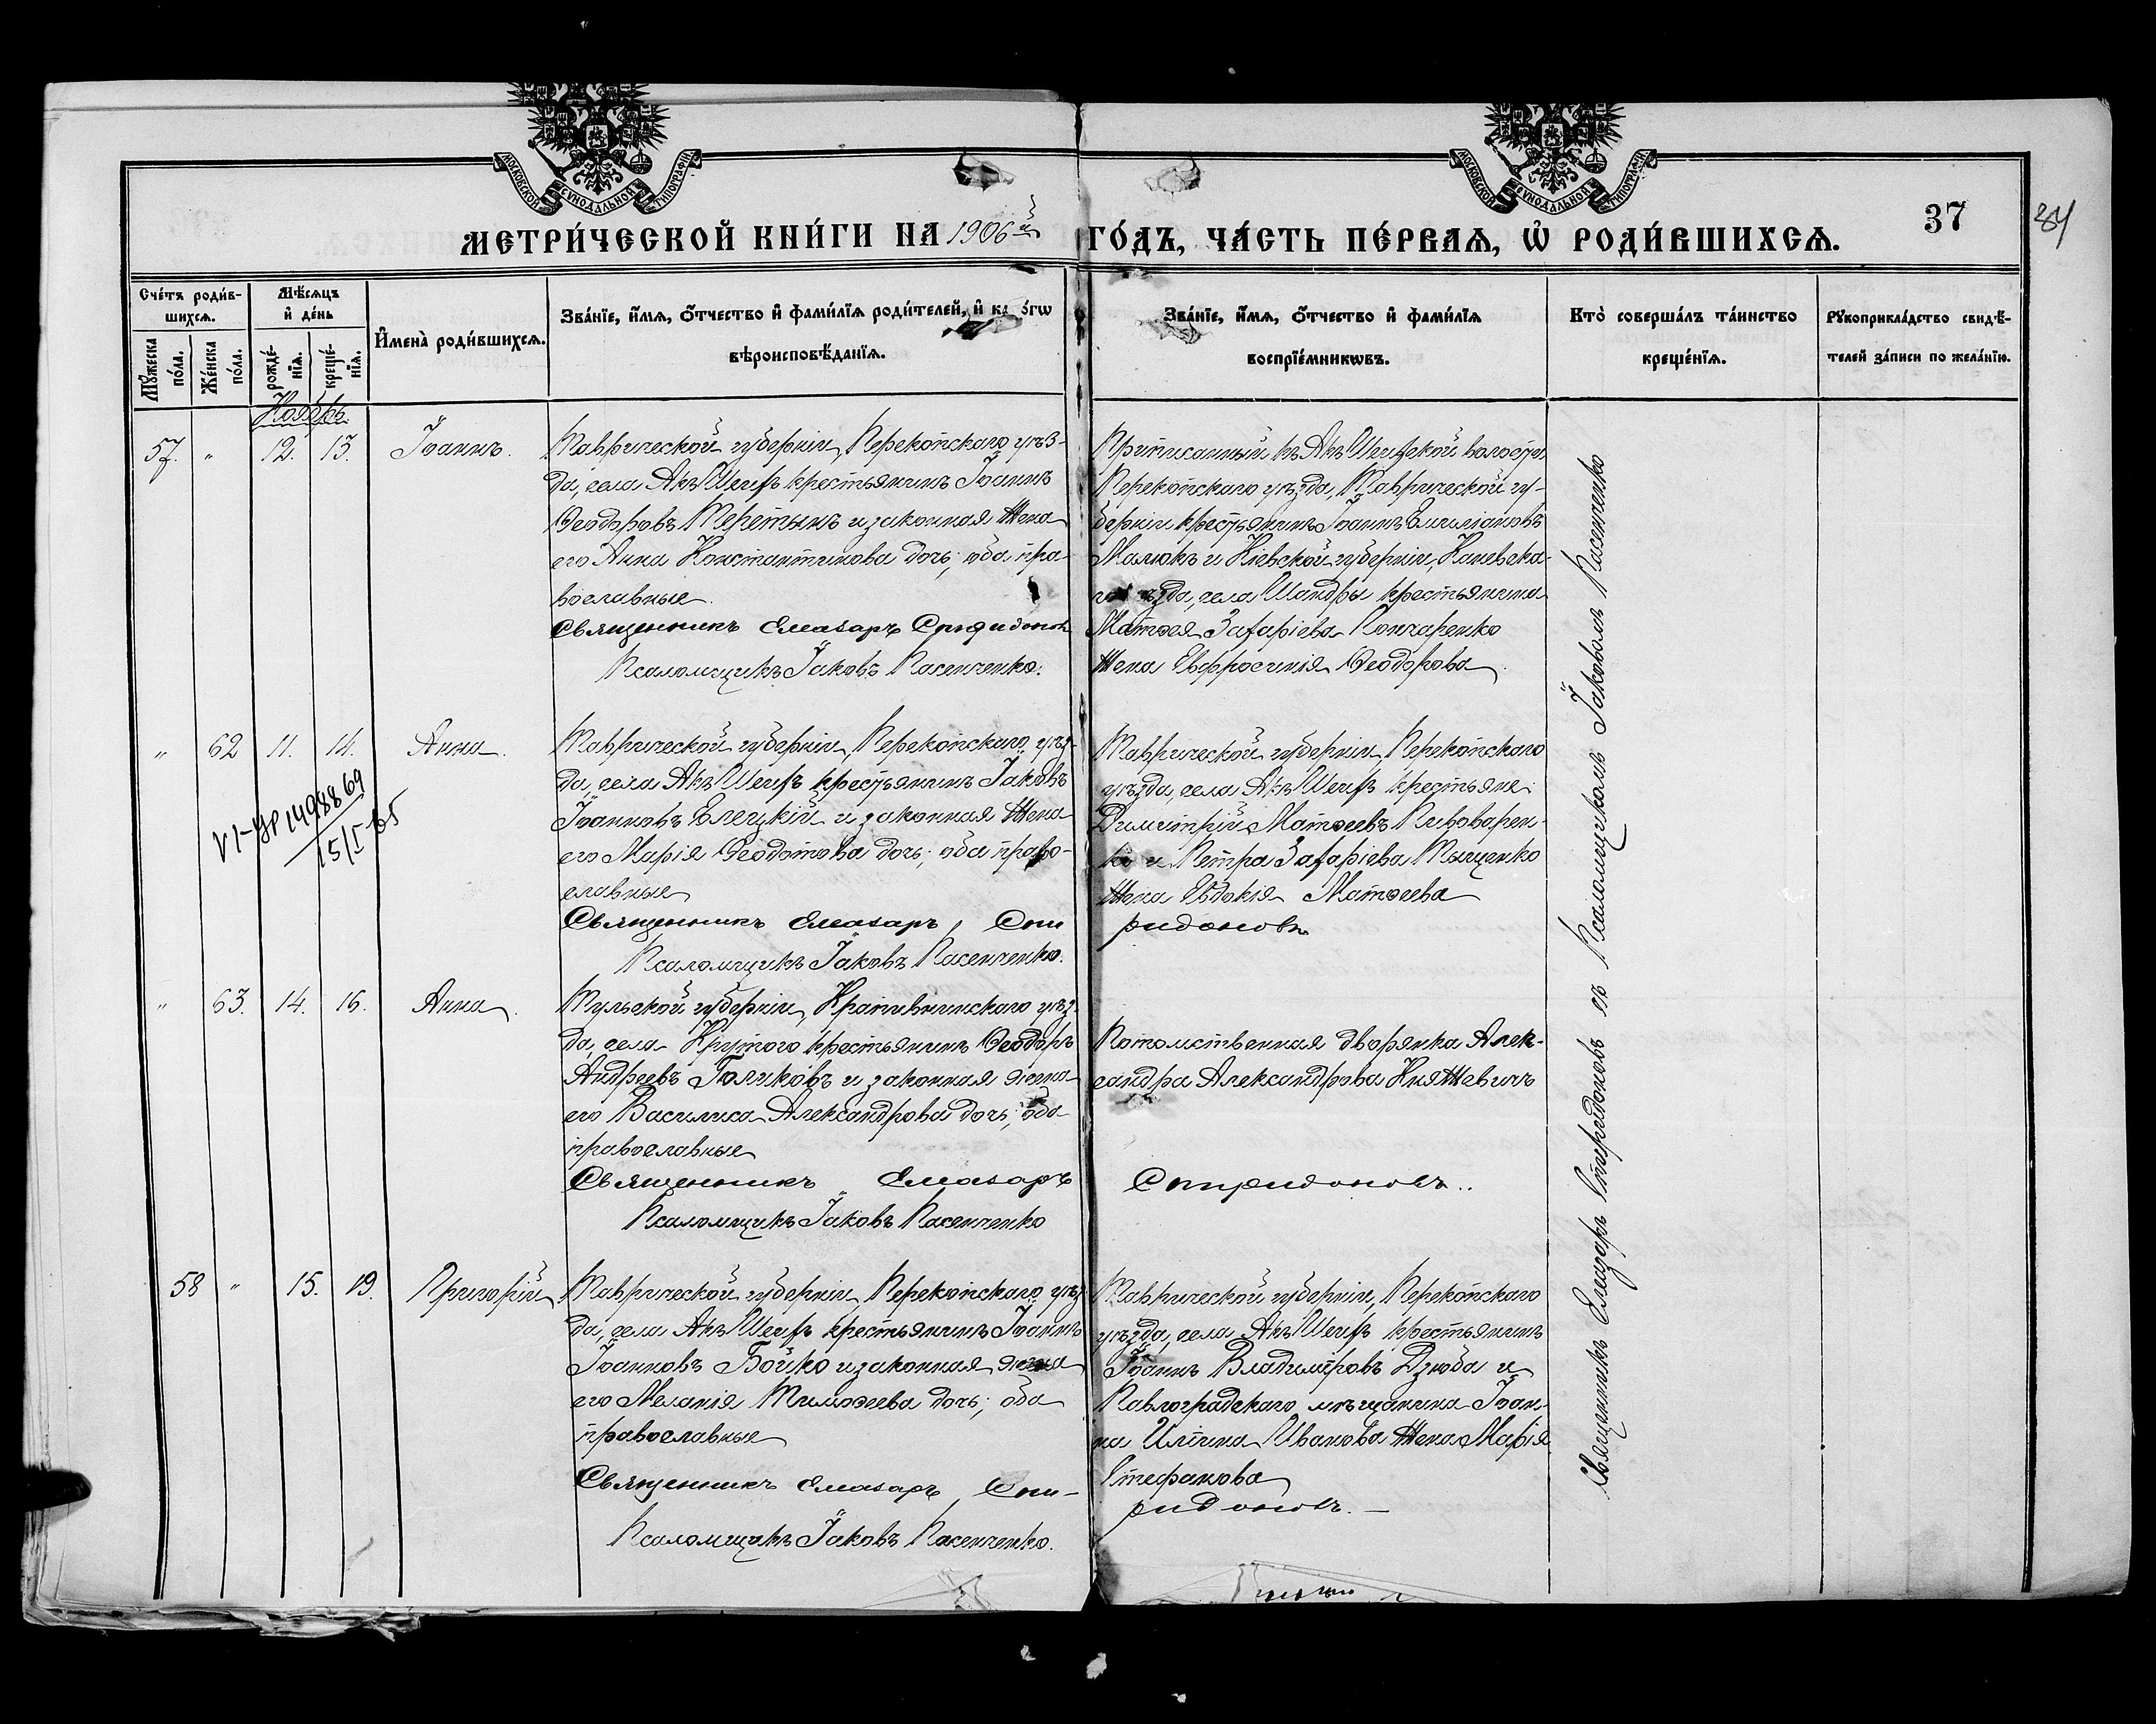 МОСКОВСКОЙ СУНОДАЛЬНОЙ ТИПОГРАФІИ
МОСКОВСКОЙ СУНОДАЛЬНОЙ ТИПОГРАФІИ
МЕТРИ́ЧЕСКОЙ КНИ́ГИ НА 1906й ГО́ДЪ, ЧА́СТЬ ПЕ́РВАѦ, Ѡ҆ РОДИ́ВШИХСѦ.
37
Сче́тъ роди́в-
шихсѧ.
Мꙋ́жеска по́ла.
Же́нска по́ла.
Мѣ́сѧцъ
и҆ де́нь
рожде́-
нїѧ.
креще́-
нїѧ.
И҆мена̀ роди́вшихсѧ.
Зва́нїе, и҆́мѧ, ѻ҆́тчество и҆ фами́лїѧ роди́телей, и҆ ко́гѡ
вѣроисповѣ́данїѧ.
Зва́нїе, и҆́мѧ, ѻ҆́тчество и҆ фами́лїѧ
воспрїе́мникѡвъ.
Кто̀ соверша́лъ та́инство
креще́нїѧ.
Рꙋкоприкла́дство свидѣ́-
телей за́писи по жела́нїю.
Ноябрь.
57. " 12. 13. Іоаннъ.
Таврической губерніи, Перекопскаго уѣз-
да, села Акъ Шеихъ крестьянинъ Іоаннъ
Ѳеодоровъ Теретынъ и законная жена
его Анна Константинова дочь; оба пра-
вославные.
Священникъ Елеазаръ Спиридонов
Псаломщикъ Іаковъ Пасенченко.
Приписанный къ Акъ Шеихской волости,
Перекопскаго уѣзда, Таврической гу-
берніи крестьянинъ Іоаннъ Емиліановъ
Малюкъ и Кіевской губерніи, Каневска-
го уѣзда, села Шандры крестьянина
Матѳея Захаріева Гончаренко
жена Евфросинія Ѳеодорова.
" 62 11. 14. Анна.
VI-УР 1498869
15/I-85
Таврической губерніи, Перекопскаго уѣз-
да, села Акъ Шеихъ крестьянинъ Іаковъ
Іоанновъ Елецкій и законная жена
его Марія Ѳеодотова дочь; оба право-
славные
Священникъ Елеазаръ Спи
ридоновъ
Псаломщикъ Іаковъ Пасенченко.
Таврической губерніи, Перекопскаго
уѣзда, села Акъ Шеихъ крестьяне:
Димитрій Матѳеевъ Пивоварен-
ко и Петра Захаріева Тыщенко
жена Евдокія Матѳеева
" 63. 14. 16. Анна.
Тульской губерніи, Крапивинскаго уѣз-
да, села Крутого крестьянинъ Ѳеодоръ
Андреевъ Голиковъ и законная жена
его Василиса Александрова дочь; оба
православные
Священникъ Елеазаръ Спиридоновъ..
Псаломщикъ Іаковъ Пасенченко
Потомственная дворянка Алек-
сандра Александрова Княжевичъ
58 " 15. 19. Григорій
Таврической губерніи, Перекопскаго уѣз
да, села Акъ Шеихъ крестьянинъ Іоаннъ
Іоанновъ Бойко и законная жена
его Меланія Тимоѳеева дочь; оба
православные
Священникъ Елеазаръ Спи-
ридоновъ. —
Псаломщикъ Іаковъ Пасенченко.
Таврической губерніи, Перекопскаго
уѣзда, села Акъ Шеихъ крестьянинъ
Іоаннъ Владиміровъ Дзюба и
Павлоградскаго мѣщанина Іоан-
на Иліина Иванова жена Марія
Стефанова
Священникъ Елеазаръ Спиридоновъ съ Псаломщикомъ Іаковомъ Пасенченко